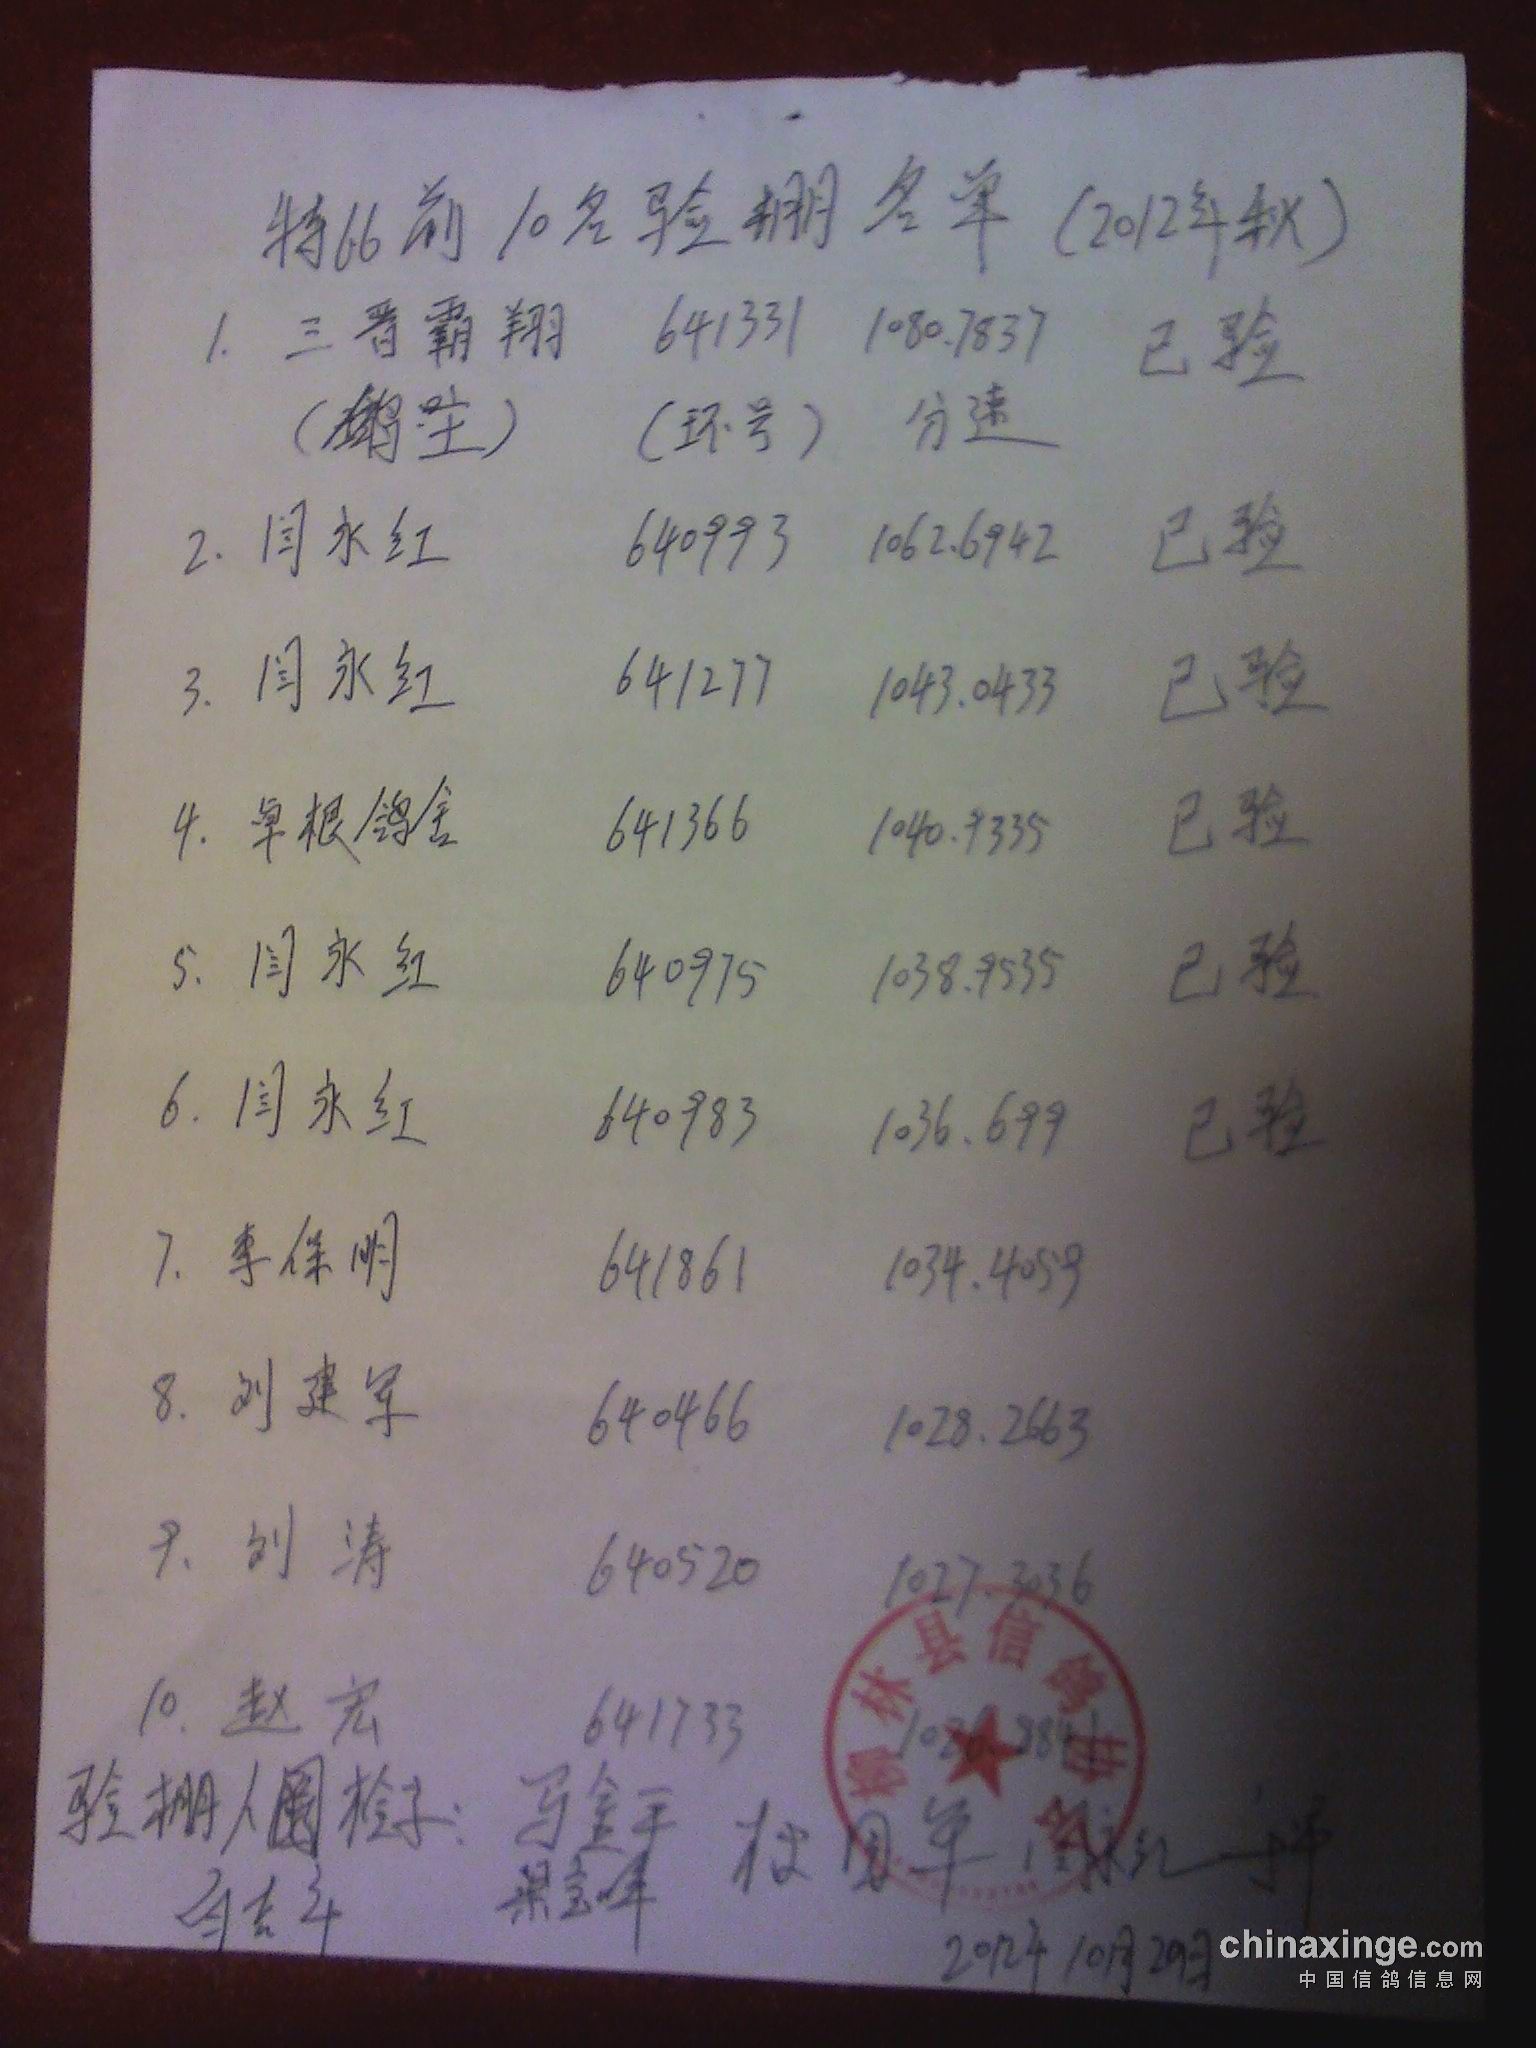 特66前10名验棚名单(2012年秋)
1. 三晋霸翔 641331 1080.7837 已验
(环号) 分速
2. 闫永红 640993 1062.6942 已验
3. 闫永红 641277 1043.0433 已验
4. 草根鸽舍 641366 1040.9335 已验
5. 闫永红 640975 1038.9535 已验
6. 闫永红 640983 1036.699 已验
7. 李保明 641861 1034.4059
8. 刘建军 640466 1028.2663
9. 刘涛 640520 1027.3036
10. 赵宏 641733
验棚人 冯金平
梁宝峰
2012年10月29日
林县信鸽协会
chinaxinge.com
中国信鸽信息网